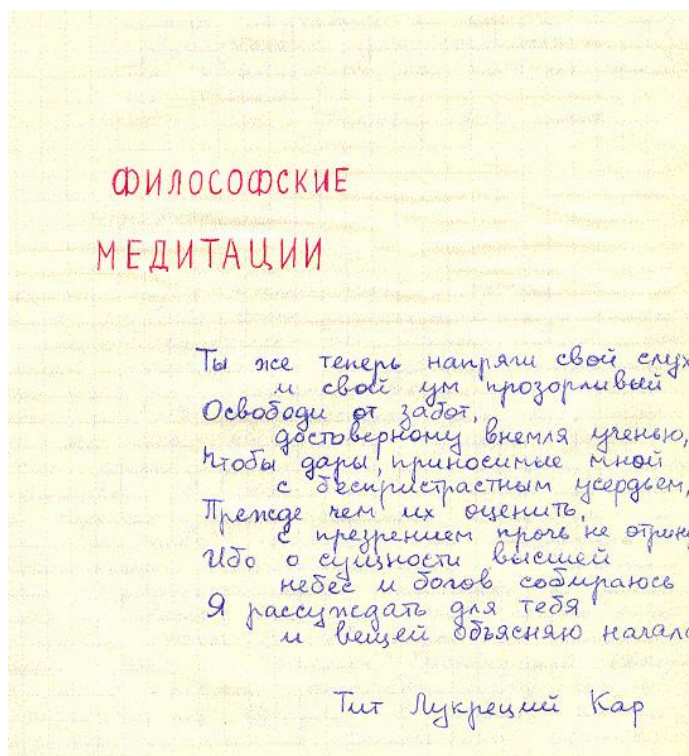 ФИЛОСОФСКИЕ
МЕДИТАЦИИ
Ты же теперь напряги свой слух
и свой ум прозорливый
Освободи от забот,
достоверному внемля ученью,
Чтобы дары, приносимые мной
с беспристрастным усердьем,
Прежде чем их оценить,
с презрением прочь не отрину
Ибо о сущности высшей
небес и богов собираюсь
Я рассуждать для тебя
и вещей объясняю начала
Тит Лукреций Кар